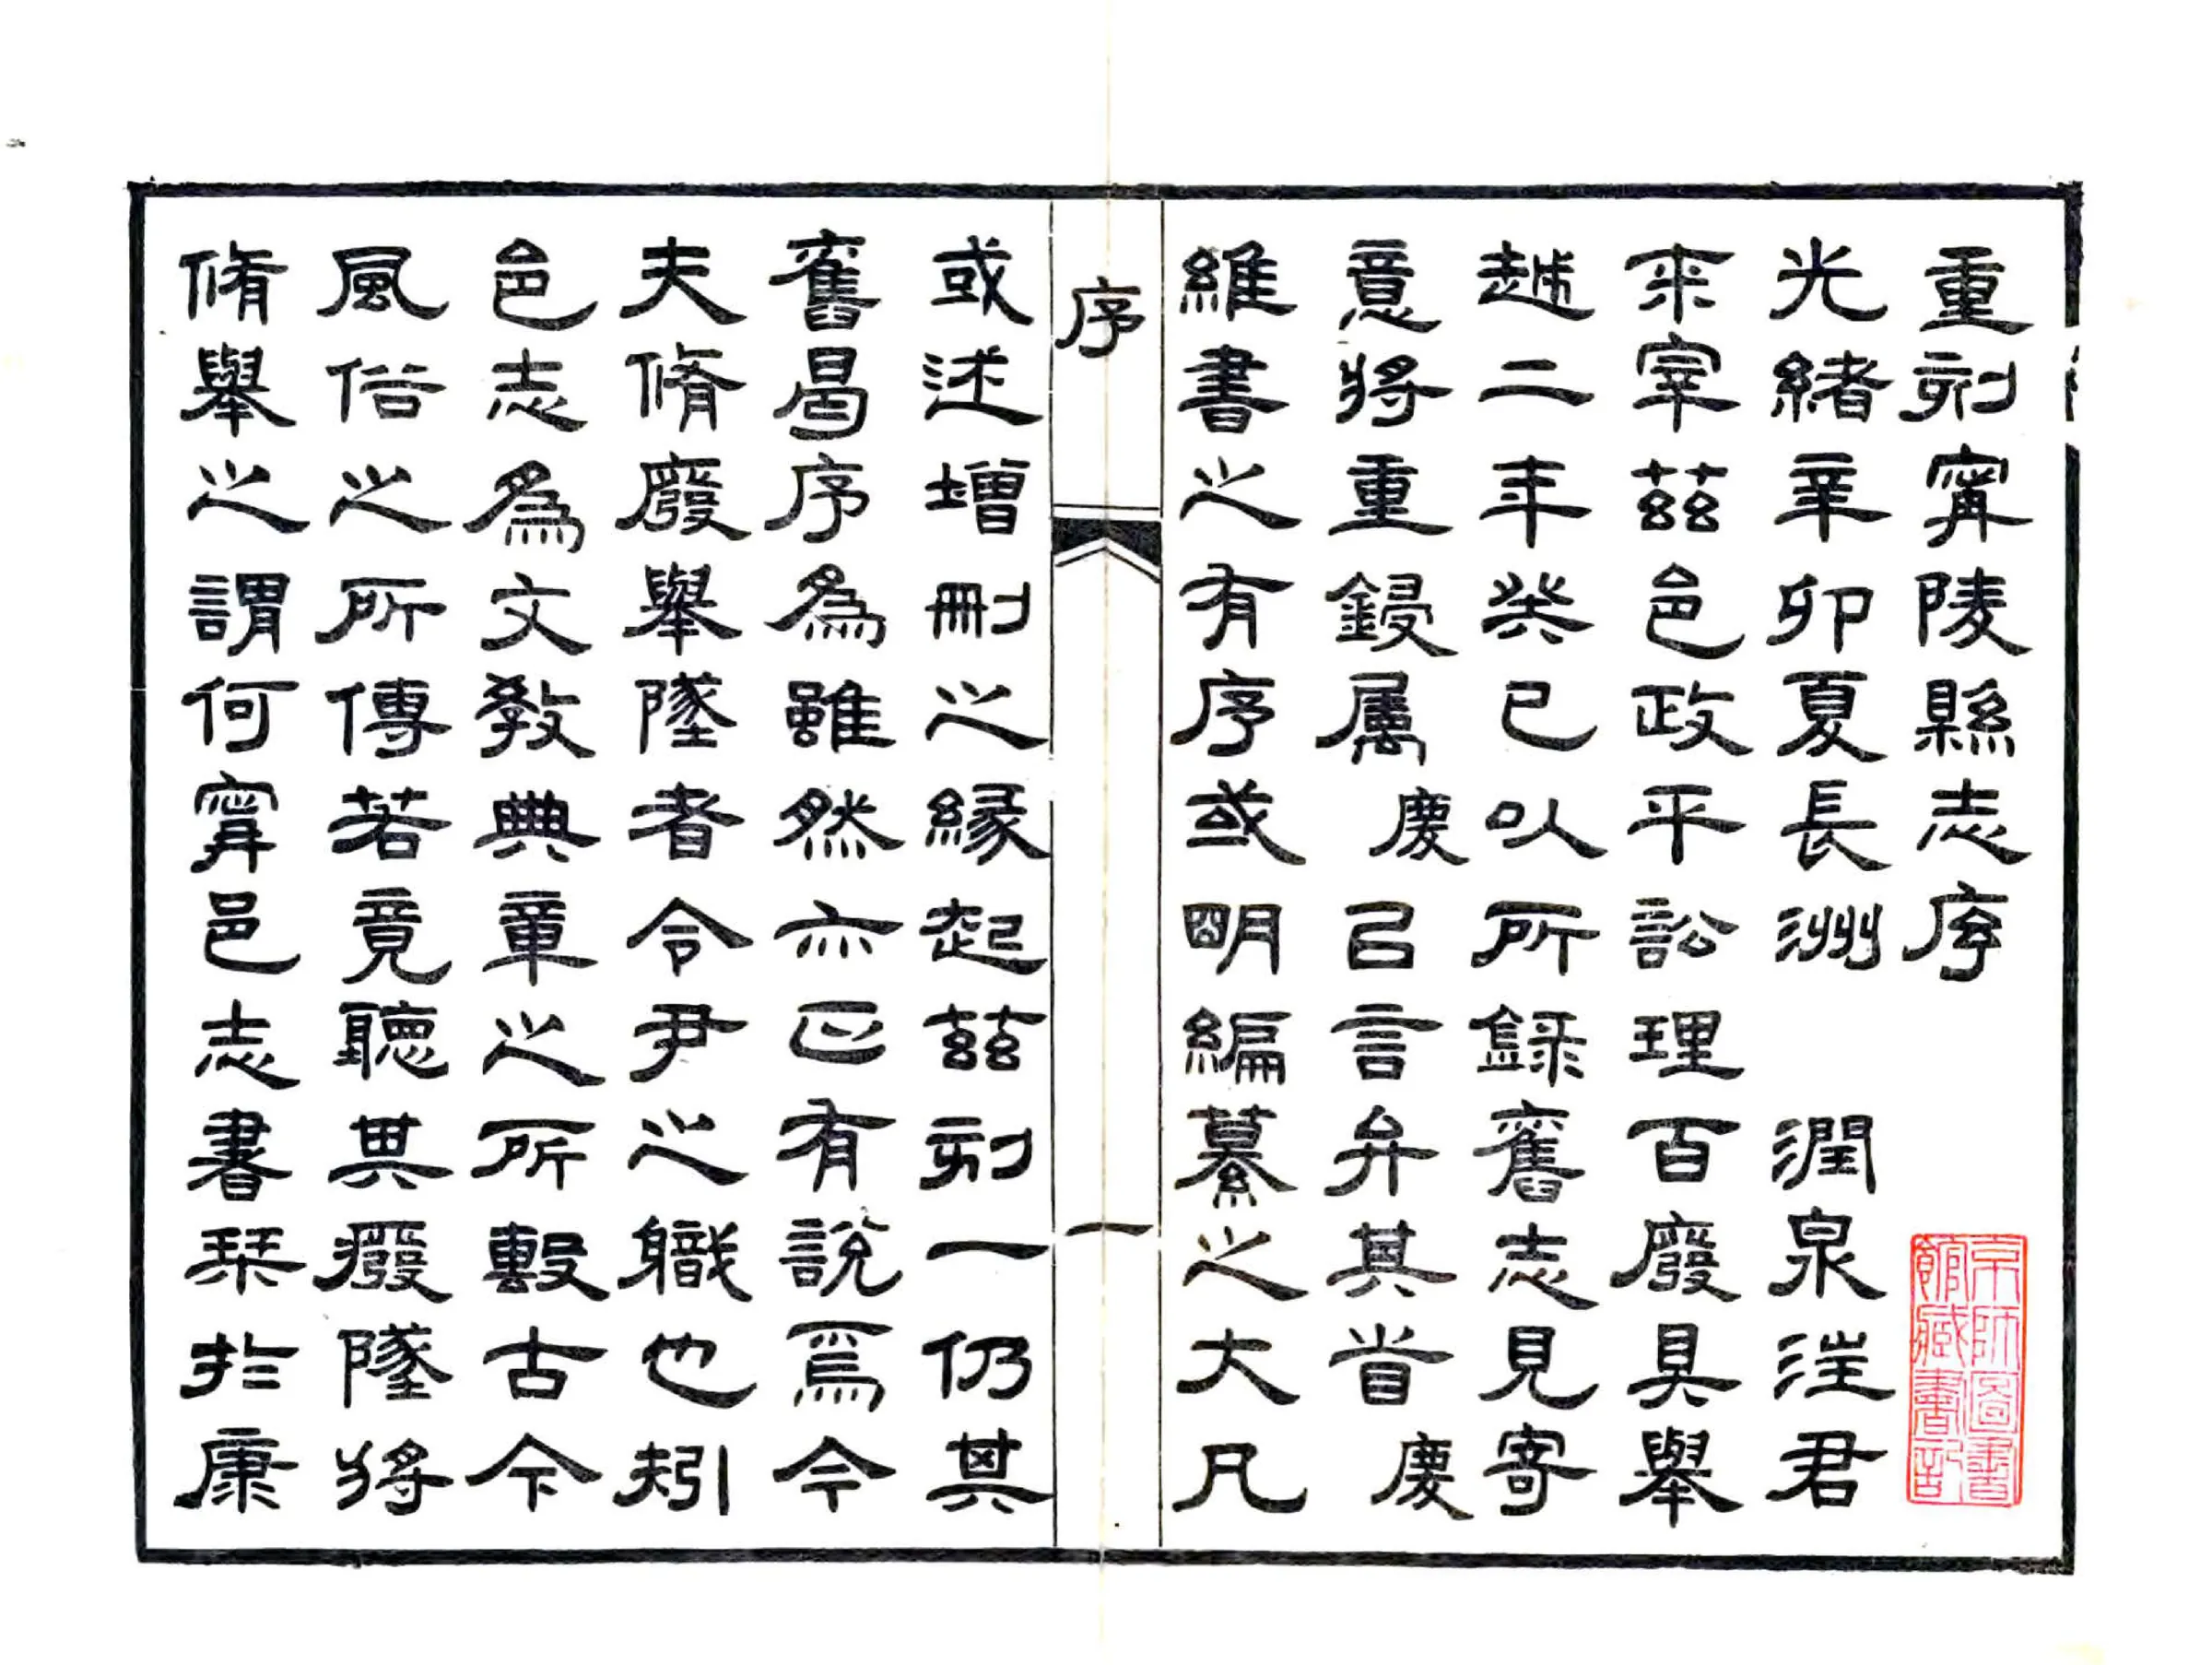 重刻寗陵縣志序
光緒辛卯夏長洲 潤泉汪君
来宰茲邑政平訟理百廢具舉
越二年癸巳以所録舊志見寄
意將重鋟属慶㠯言弁其首慶
維書之有序或明編纂之大凡
序
一
或述增刪之緣起茲刻一仍其
舊曷序為雖然亦正有說焉今
夫脩廢舉墜者令尹之職也矧
邑志為文教典章之所毄古今
風俗之所傳若竟聽其廢墜將
脩舉之謂何寗邑志書栞於康
京師圖書
館藏書記